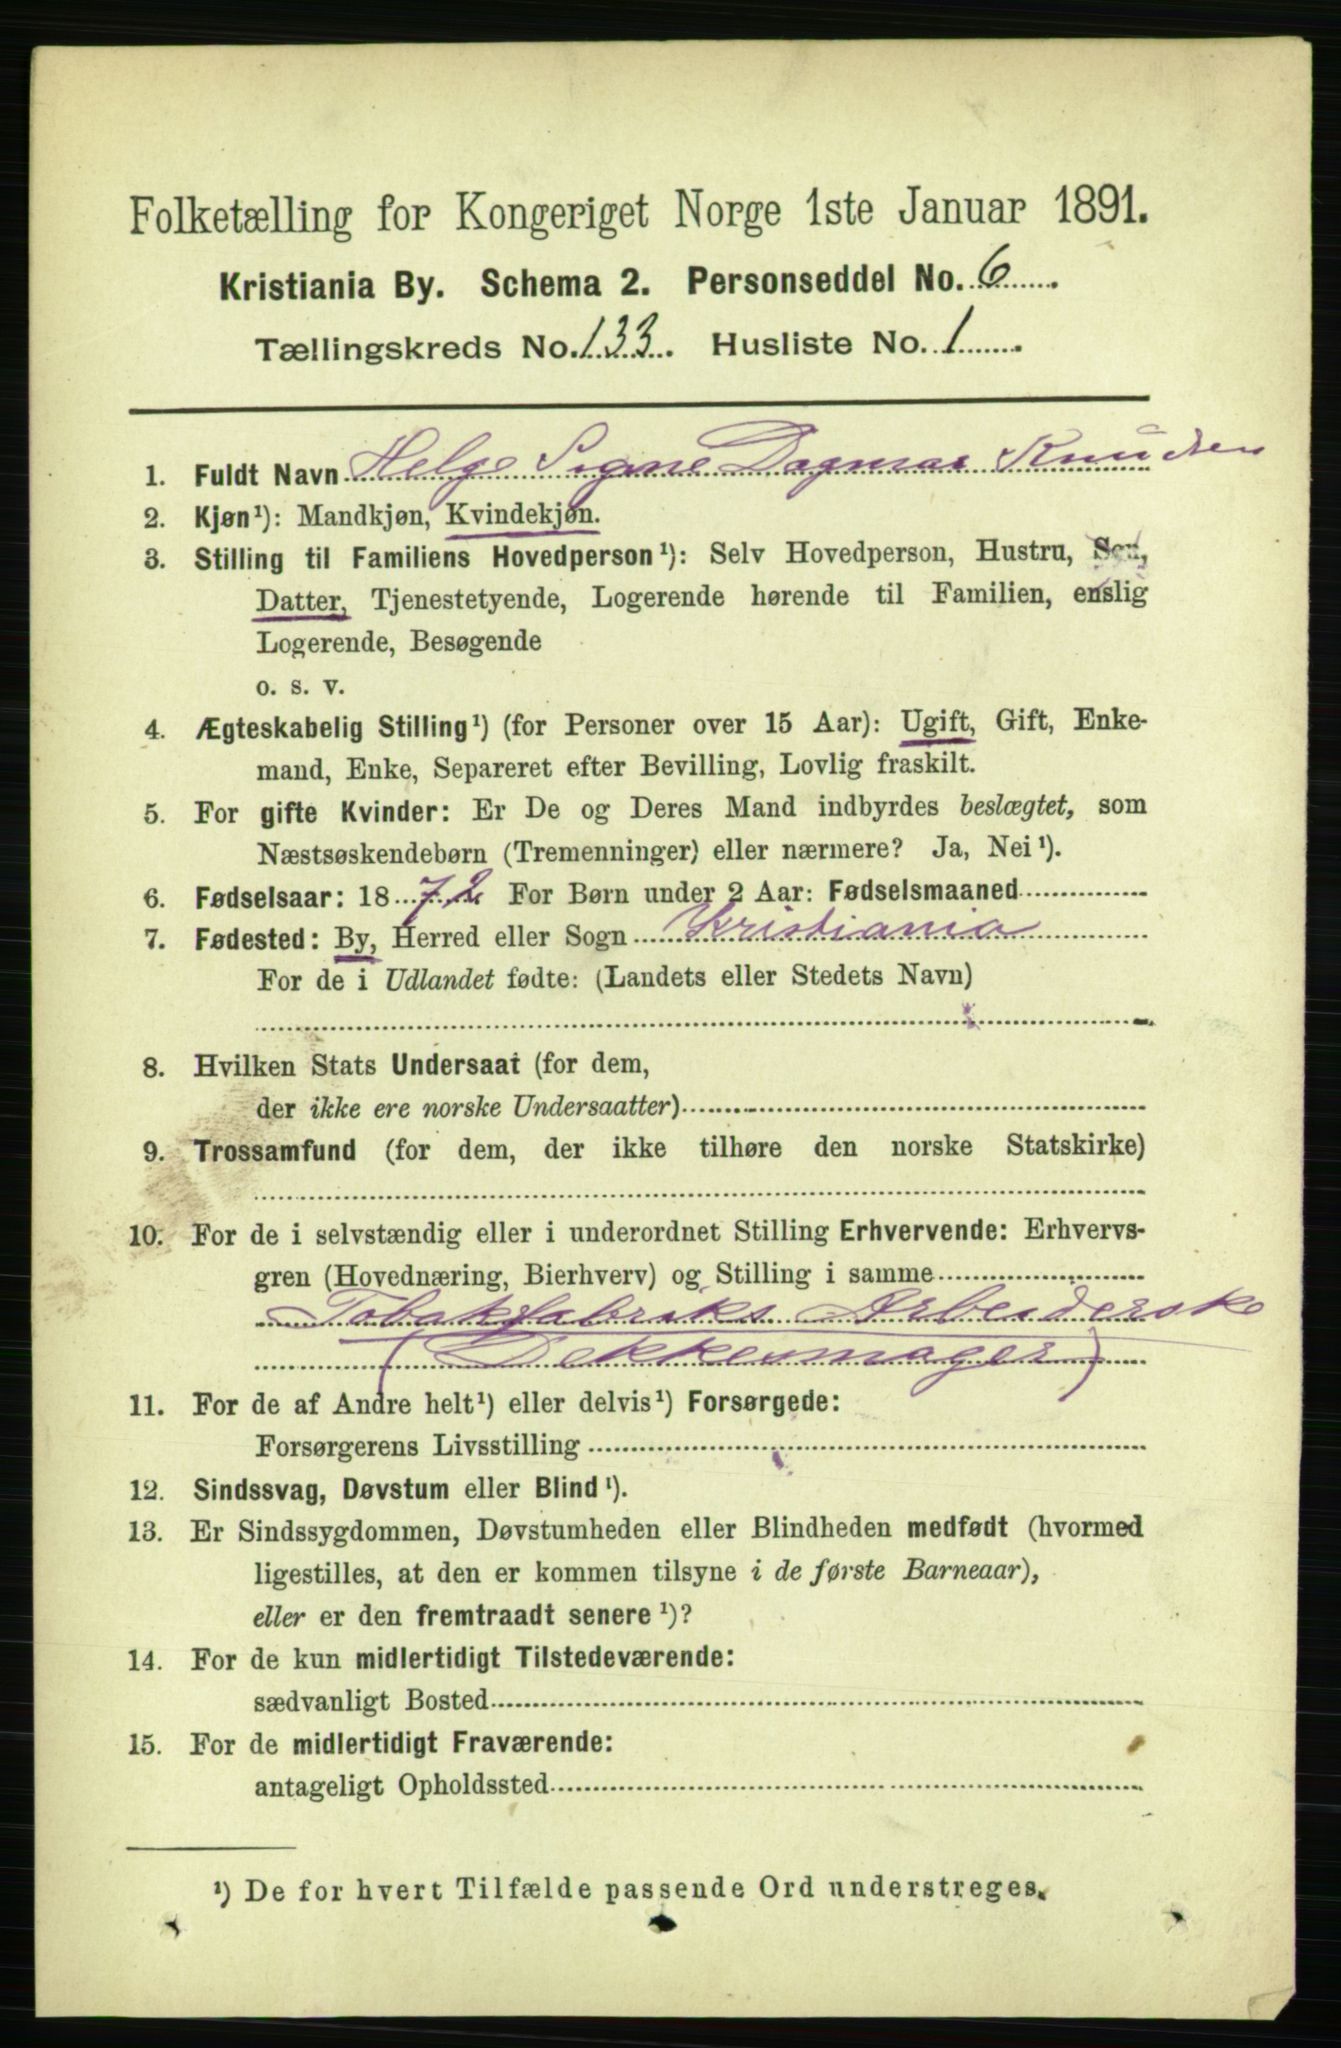 Folketælling for Kongeriget Norge 1ste Januar 1891.
Kristiania By. Schema 2. Personseddel No. 6
Tællingskreds No. 133. Husliste No. 1
1. Fuldt Navn Helga Signe Dagmar Knudsen
2. Kjøn¹): Mandkjøn, Kvindekjøn.
3. Stilling til Familiens Hovedperson¹): Selv Hovedperson, Hustru, Søn,
Datter, Tjenestetyende, Logerende hørende til Familien, enslig
Logerende, Besøgende
o. s. v.
4. Ægteskabelig Stilling¹) (for Personer over 15 Aar): Ugift, Gift, Enke-
mand, Enke, Separeret efter Bevilling, Lovlig fraskilt.
5. For gifte Kvinder: Er De og Deres Mand indbyrdes beslægtet, som
Næstsøskendebørn (Tremenninger) eller nærmere? Ja, Nei¹).
6. Fødselsaar: 1872 For Børn under 2 Aar: Fødselsmaaned
7. Fødested: By, Herred eller Sogn Kristiania
For de i Udlandet fødte: (Landets eller Stedets Navn)
8. Hvilken Stats Undersaat (for dem,
der ikke ere norske Undersaatter)
9. Trossamfund (for dem, der ikke tilhøre den norske Statskirke)
10. For de i selvstændig eller i underordnet Stilling Erhvervende: Erhvervs-
gren (Hovednæring, Bierhverv) og Stilling i samme
Tobaksfabriks Arbeiderske
(Dekkersmager)
11. For de af Andre helt¹) eller delvis¹) Forsørgede:
Forsørgerens Livsstilling
12. Sindssvag, Døvstum eller Blind¹).
13. Er Sindssygdommen, Døvstumheden eller Blindheden medfødt (hvormed
ligestilles, at den er kommen tilsyne i de første Barneaar),
eller er den fremtraadt senere¹)?
14. For de kun midlertidigt Tilstedeværende:
sædvanligt Bosted
15. For de midlertidigt Fraværende:
antageligt Opholdssted
¹) De for hvert Tilfælde passende Ord understreges.